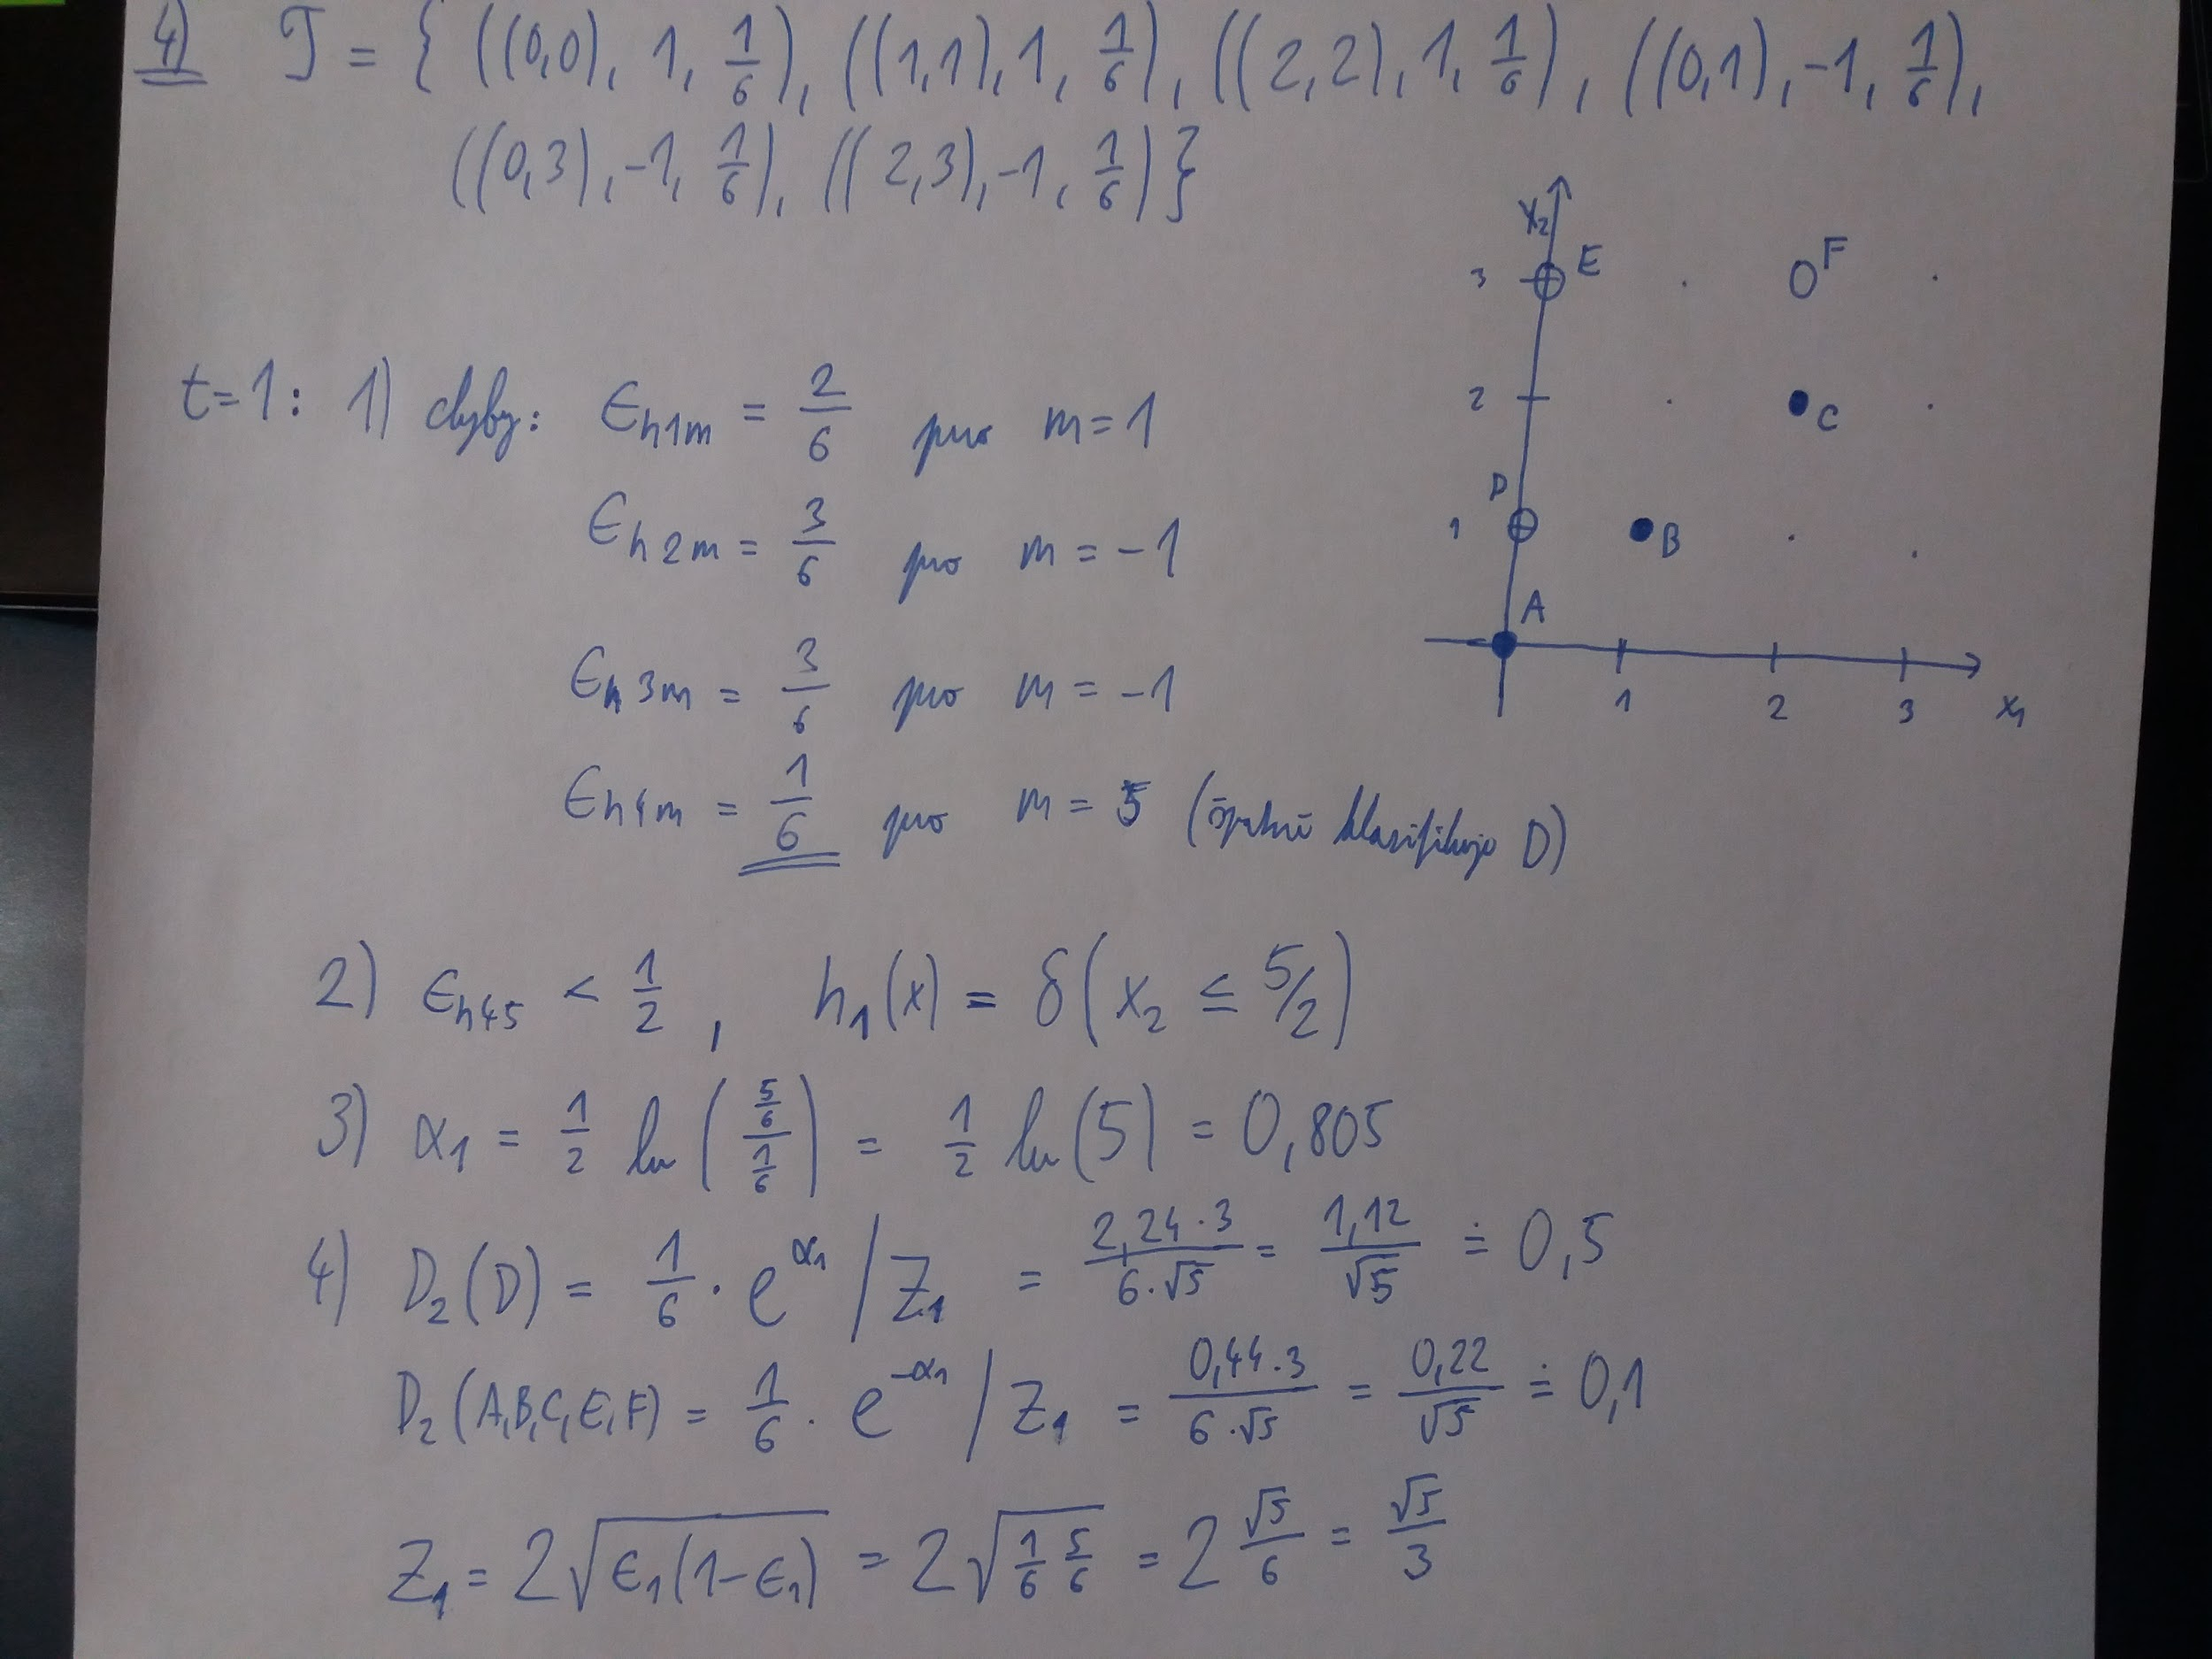 4) T = { ((0,0), 1, 1/6), ((1,1), 1, 1/6), ((2,2), 1, 1/6), ((0,1), -1, 1/6),
((0,3), -1, 1/6), ((2,3), -1, 1/6) }
x₂
3 E F
2 C
D
1 B
A
1 2 3 x₁
t=1: 1) chyby: ϵh1m = 2/6 pro m = 1
ϵh2m = 3/6 pro m = -1
ϵh3m = 3/6 pro m = -1
ϵh4m = 1/6 pro m = 5 (špatně klasifikuje D)
2) ϵh45 < 1/2 , h₁(x) = δ(x₂ ≤ 5/2)
3) α₁ = 1/2 ln((5/6)/(1/6)) = 1/2 ln(5) = 0,805
4) D₂(D) = 1/6 · e^α₁ / Z₁ = (2,24·3)/(6·√5) = 1,12/√5 ≐ 0,5
D₂(A,B,C,E,F) = 1/6 · e^-α₁ / Z₁ = (0,44·3)/(6·√5) = 0,22/√5 ≐ 0,1
Z₁ = 2√(ϵ₁(1-ϵ₁)) = 2√(1/6 5/6) = 2 √5/6 = √5/3